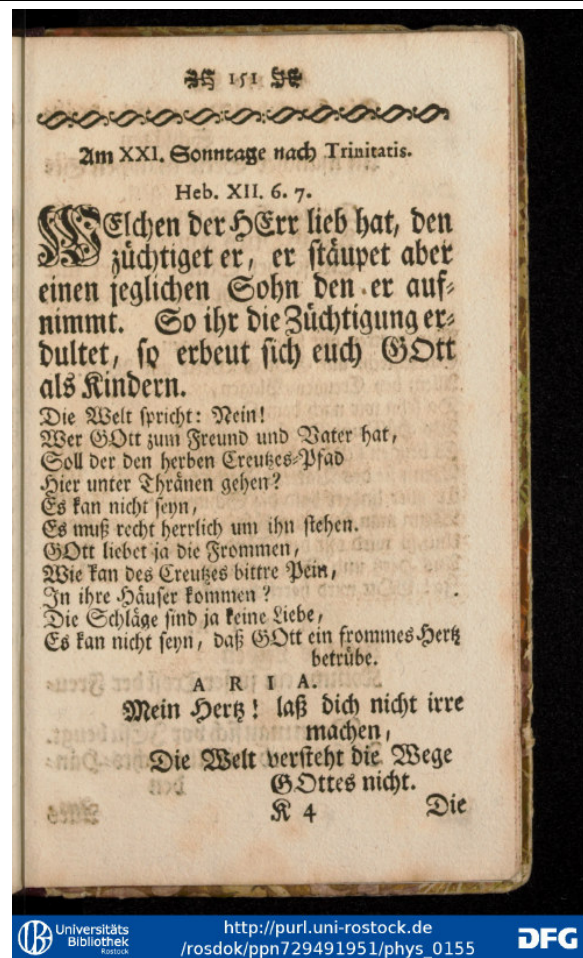 151
Am XXI. Sonntage nach Trinitatis.
Heb. XII. 6. 7.
WElchen der HErr lieb hat, den
züchtiget er, er stäupet aber
einen jeglichen Sohn den er auf-
nimmt. So ihr die Züchtigung er-
dultet, so erbeut sich euch GOtt
als Kindern.
Die Welt spricht: Nein!
Wer GOtt zum Freund und Vater hat,
Soll der den herben Creutzes-Pfad
Hier unter Thränen gehen?
Es kan nicht seyn,
Es muß recht herrlich um ihn stehen.
GOtt liebet ja die Frommen,
Wie kan des Creutzes bittre Pein,
In ihre Häuser kommen?
Die Schläge sind ja keine Liebe,
Es kan nicht seyn, daß GOtt ein frommes Hertz
betrübe.
ARIA.
Mein Hertz! laß dich nicht irre
machen,
Die Welt versteht die Wege
GOttes nicht.
K 4 Die
Universitäts
Bibliothek
Rostock
http://purl.uni-rostock.de
/rosdok/ppn729491951/phys_0155
DFG